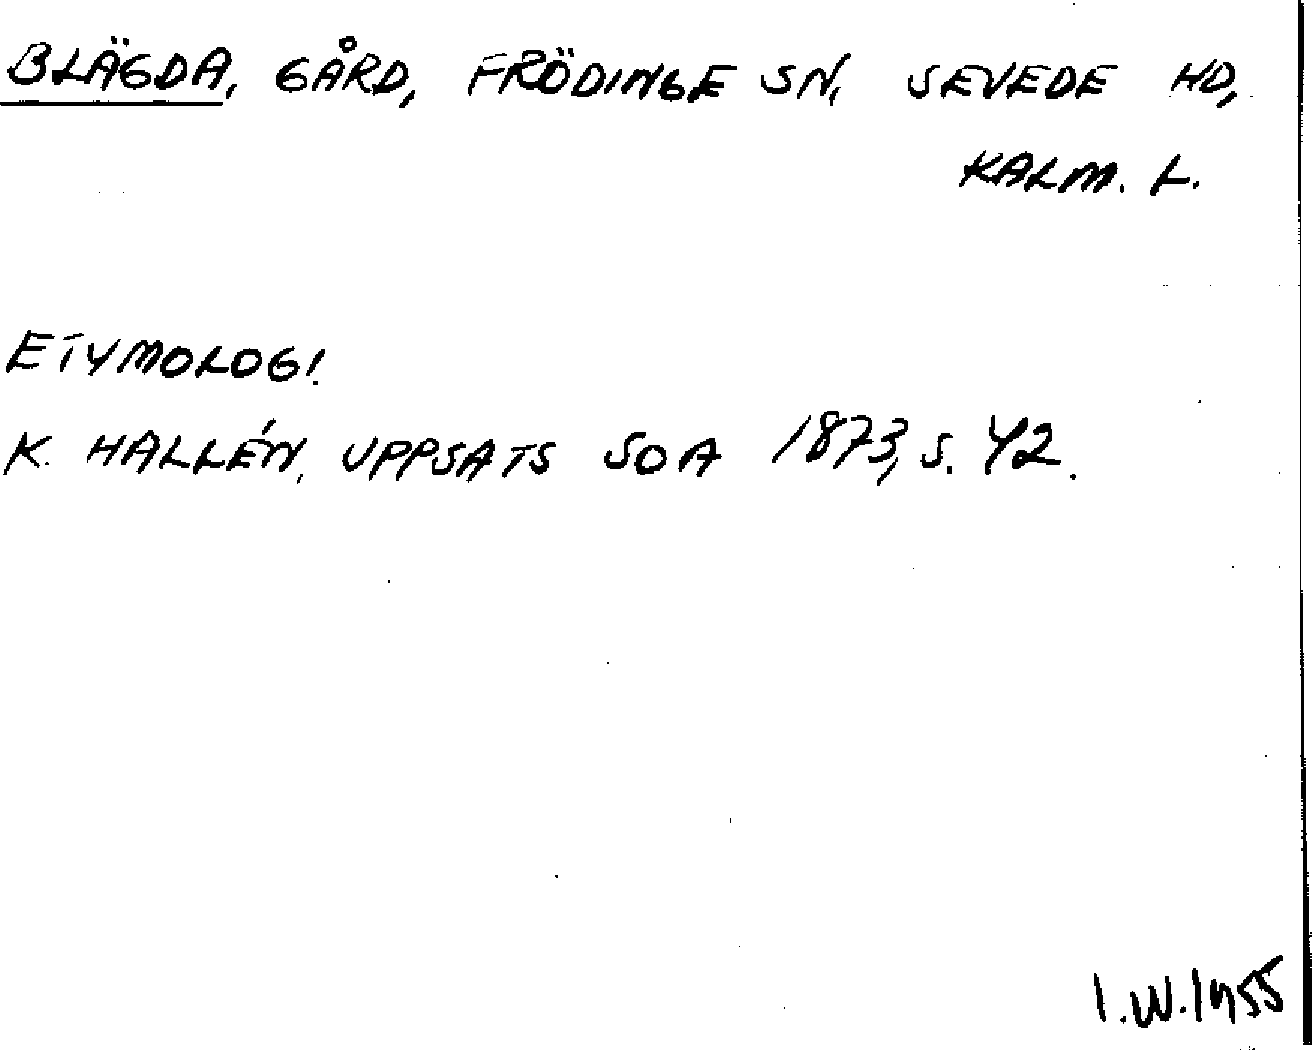 BLÄGDA, GÅRD, FRÖDINGE SN, SEVEDE HD,
KALM. L.
ETYMOLOGI.
K. HALLÉN, UPPSATS SOA 1873, S. 42.
I.W. 1955